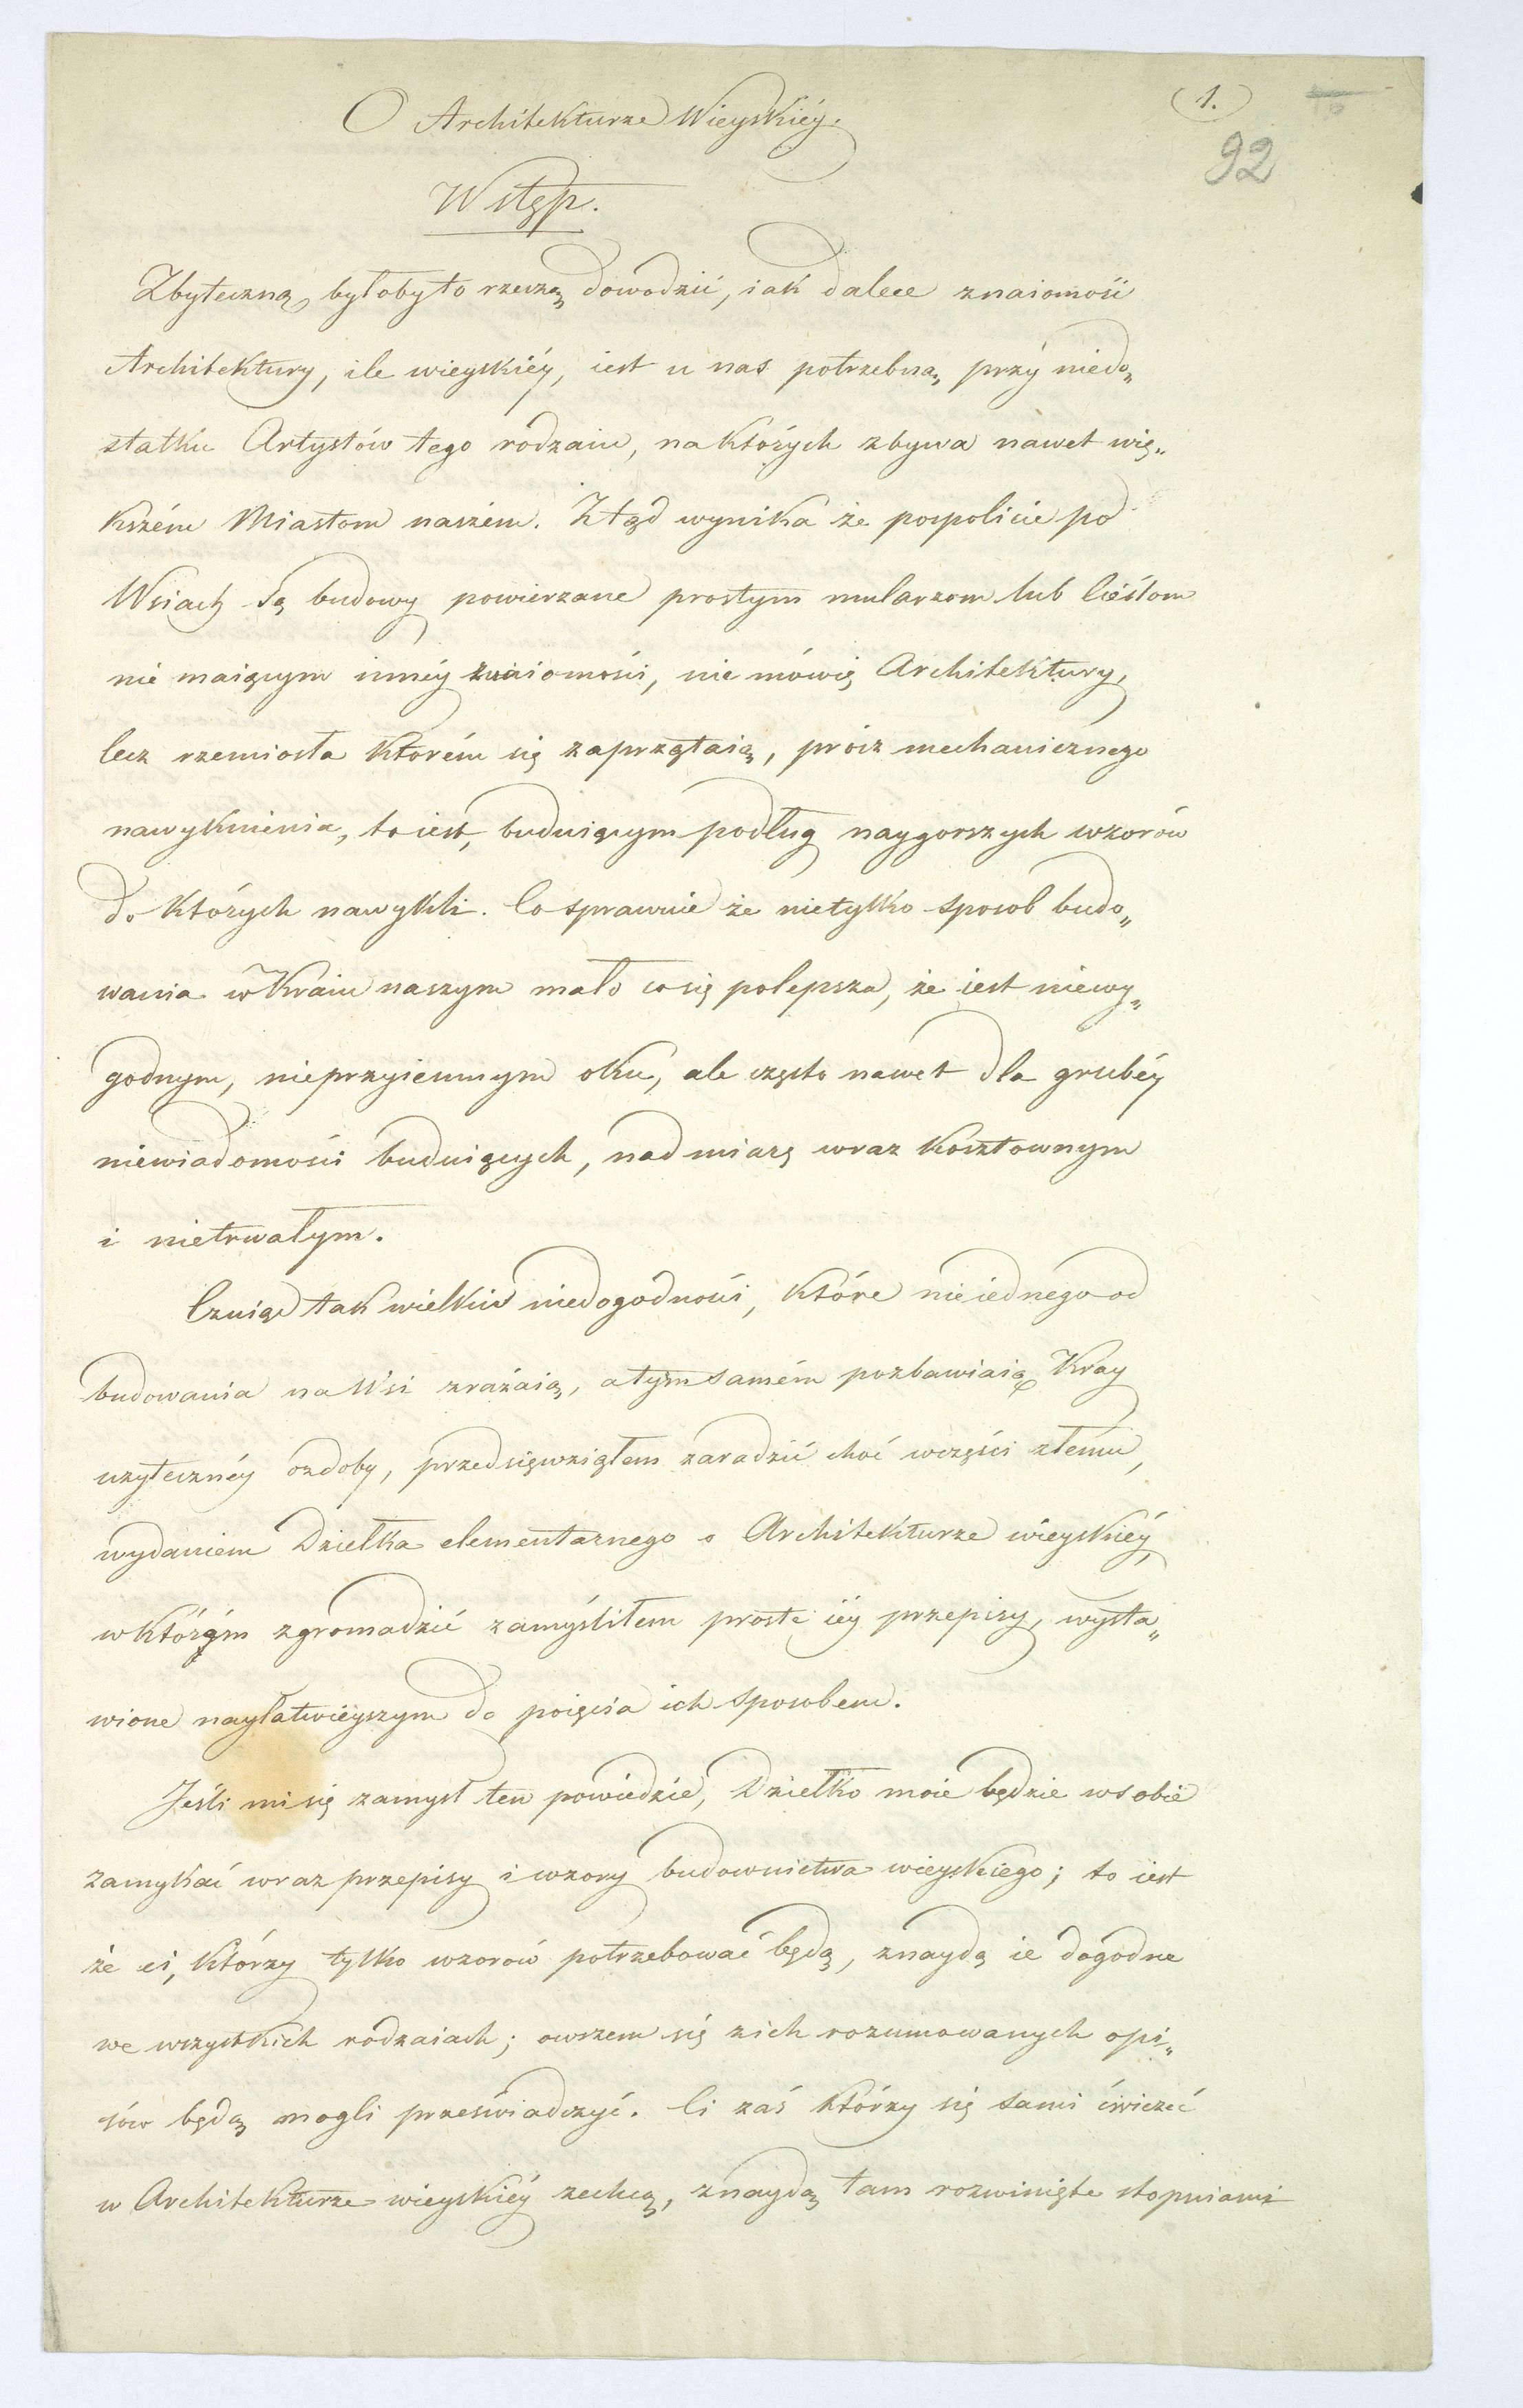 O Architekturze Wieyskiéy.
(1.)
92
Wstęp.
Zbyteczną byłoby to rzeczą dowodzić, iak dalece znaiomość
Architektury, ile wieyskiéy, iest u nas potrzebną, przy niedo„
statku Artystów tego rodzaiu, na których zbywa nawet wię„
kszém Miastom naszém. Ztąd wynika że pospolicie po
Wsiach są budowy powierzane prostym mularzom lub Cieślom
nie maiącym innéy znaiomości, nie mówię Architektury,
lecz rzemiosła którém się zaprzątaią, prócz mechanicznego
nawyknienia, to iest, buduiącym podług naygorszych wzorów
do których nawykli. Co sprawuie że nietylko sposob budo„
wania w Kraiu naszym mało co się polepsza, że iest niewy„
godnym, nieprzyiemnym oku, ale często nawet dla grubéy
niewiadomości buduiących, nad miarę wraz kosztownym
i nietrwałym.
Czuiąc tak wielkie niedogodności, które nieiednego od
budowania na Wsi zrażaią, a tym samém pozbawiaią Kray
uzytecznéy ozdoby, przedsięwziąłem zaradzić choć wczęści złemu,
wydaniem Dziełka elementarnego o Architekturze wieyskiéy,
w którym zgromadzić zamyśliłem proste iéy przepisy, wysta„
wione nayłatwieyszym do poięcia ich sposobem.
Jeśli mi się zamysł ten powiedzie, Dziełko moie będzie w sobie
zamykać wraz przepisy i wzory budownictwa wieyskiego; to iest
że ci, którzy tylko wzorów potrzebować będą, znaydą ie dogodne
we wszystkich rodzaiach; owszem się z ich rozumowanych opi„
sów będą mogli przeświadczyć. Ci zaś którzy się sami ćwiczeć
w Architekturze wieyskiéy zechcą, znaydą tam rozwinięte stopniami